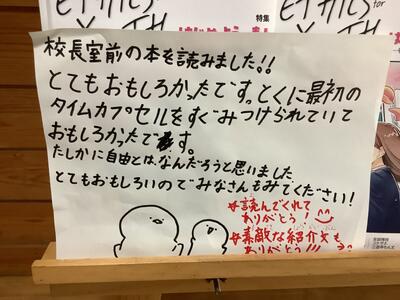 ETHICS for
特集
校長室前の本を読みました!!
とてもおもしろかったです。とくに最初の
タイムカプセルをすぐみつけられていて
おもしろかったです。
たしかに自由とは、なんだろうと思いました
とてもおもしろいのでみなさんもみてください!
読んでくれて
ありがとう!
素敵な紹介文も
ありがとう!!!